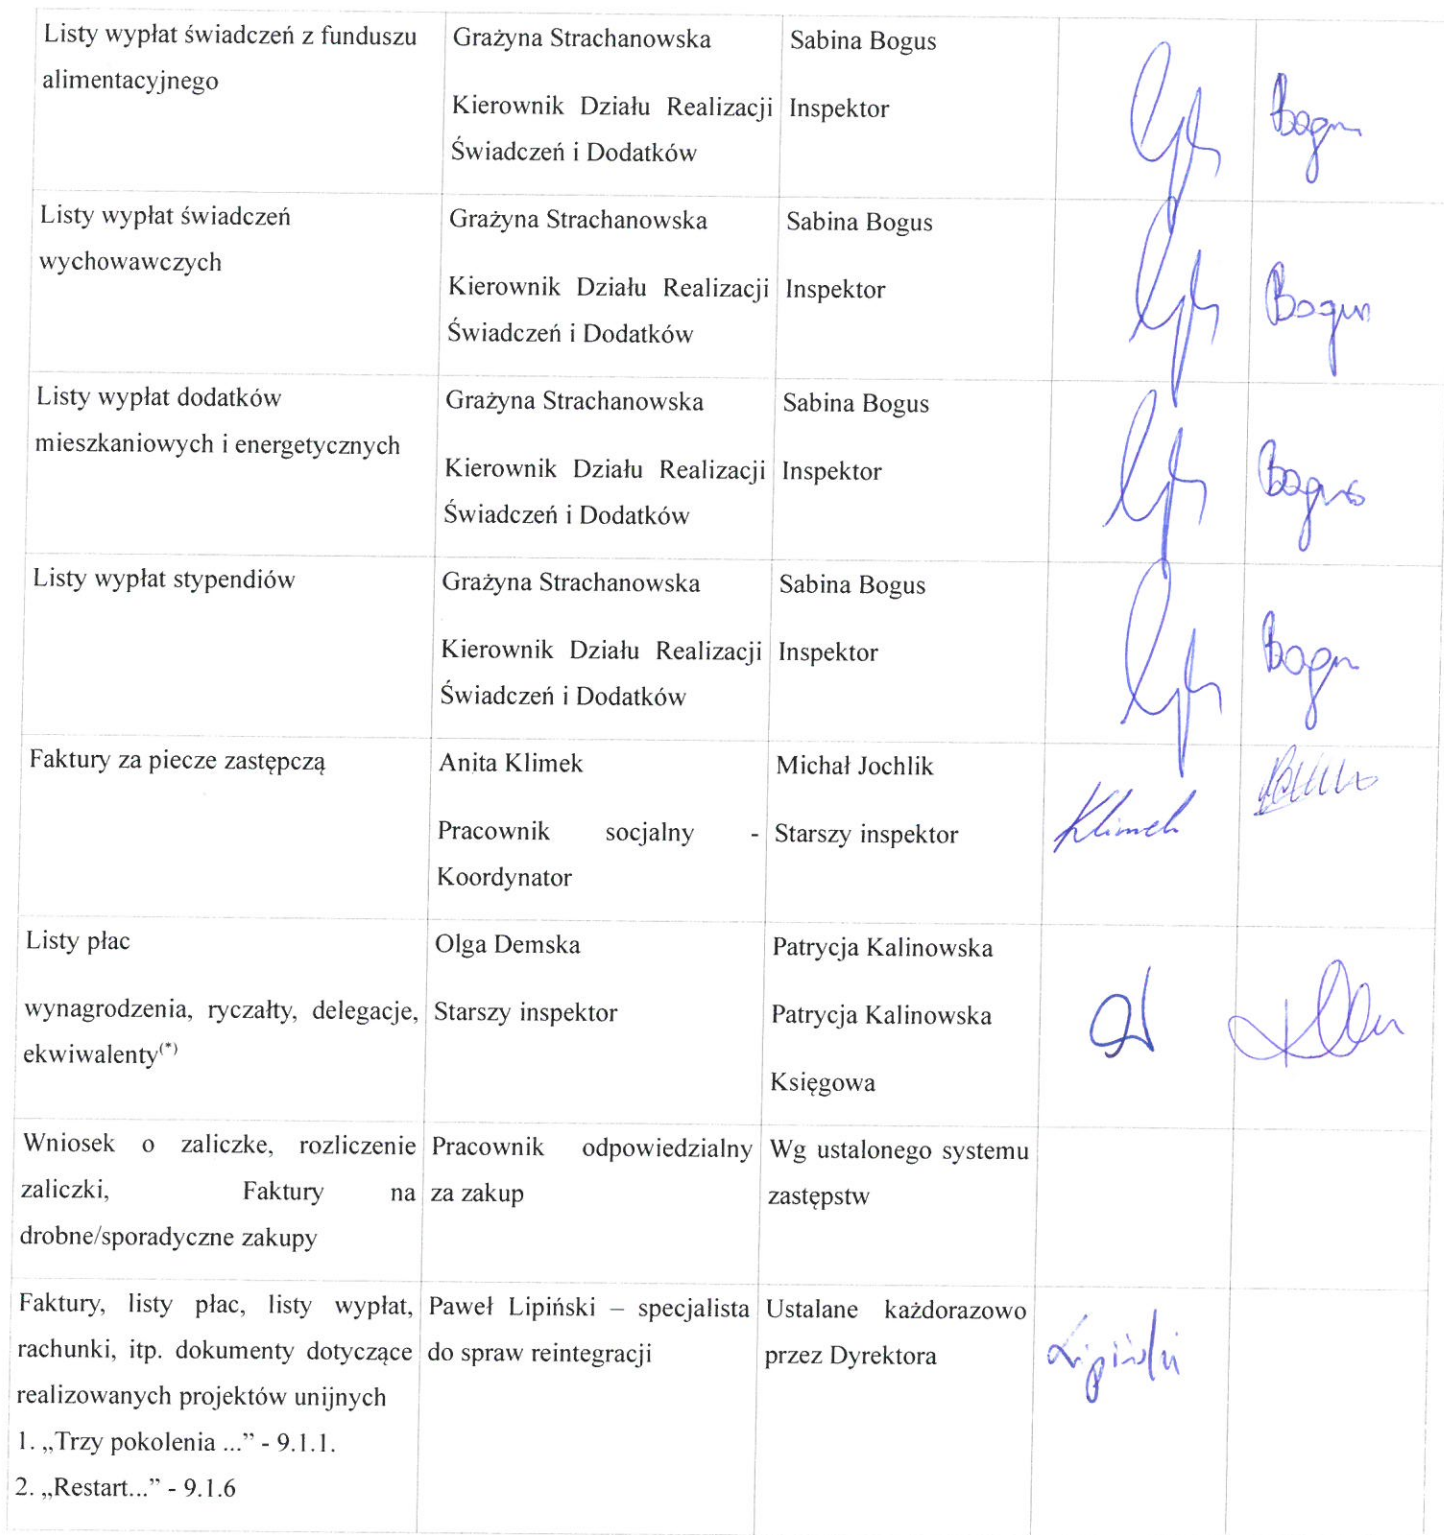 Listy wypłat świadczeń z funduszu
alimentacyjnego
Grażyna Strachanowska
Kierownik Działu Realizacji
Świadczeń i Dodatków
Sabina Bogus
Inspektor
Bogus
Listy wypłat świadczeń
wychowawczych
Grażyna Strachanowska
Kierownik Działu Realizacji
Świadczeń i Dodatków
Sabina Bogus
Inspektor
Bogus
Listy wypłat dodatków
mieszkaniowych i energetycznych
Grażyna Strachanowska
Kierownik Działu Realizacji
Świadczeń i Dodatków
Sabina Bogus
Inspektor
Bogus
Listy wypłat stypendiów
Grażyna Strachanowska
Kierownik Działu Realizacji
Świadczeń i Dodatków
Sabina Bogus
Inspektor
Bogus
Faktury za piecze zastępczą
Anita Klimek
Pracownik socjalny -
Koordynator
Michał Jochlik
Starszy inspektor
Klimek
Listy płac
wynagrodzenia, ryczałty, delegacje,
ekwiwalenty(*)
Olga Demska
Starszy inspektor
Patrycja Kalinowska
Patrycja Kalinowska
Księgowa
Wniosek o zaliczke, rozliczenie
zaliczki, Faktury na
drobne/sporadyczne zakupy
Pracownik odpowiedzialny
za zakup
Wg ustalonego systemu
zastępstw
Faktury, listy płac, listy wypłat,
rachunki, itp. dokumenty dotyczące
realizowanych projektów unijnych
1. „Trzy pokolenia ...” - 9.1.1.
2. „Restart...” - 9.1.6
Paweł Lipiński – specjalista
do spraw reintegracji
Ustalane każdorazowo
przez Dyrektora
Lipiński